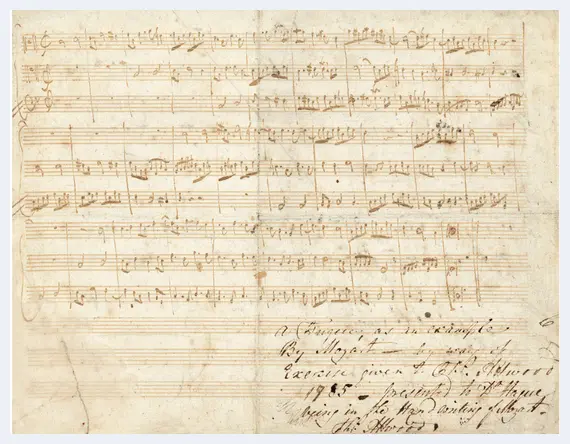 a Fugue, as an example
By Mozart — by way of
Exercise given to Thos. Attwood
1785 — presented to Dr. Hague
being in the Handwriting of Mozart.
Thos. Attwood